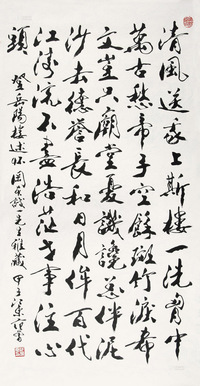 清風送我上斯樓一洗胸中
萬古愁帝子空餘斑竹淚希
文豈只廟堂憂譏讒羞伴泥
沙去德譽長和日月侔百代
江濤流不盡浩茫世事注心
頭
登岳陽樓述懷 先生雅藏 甲午